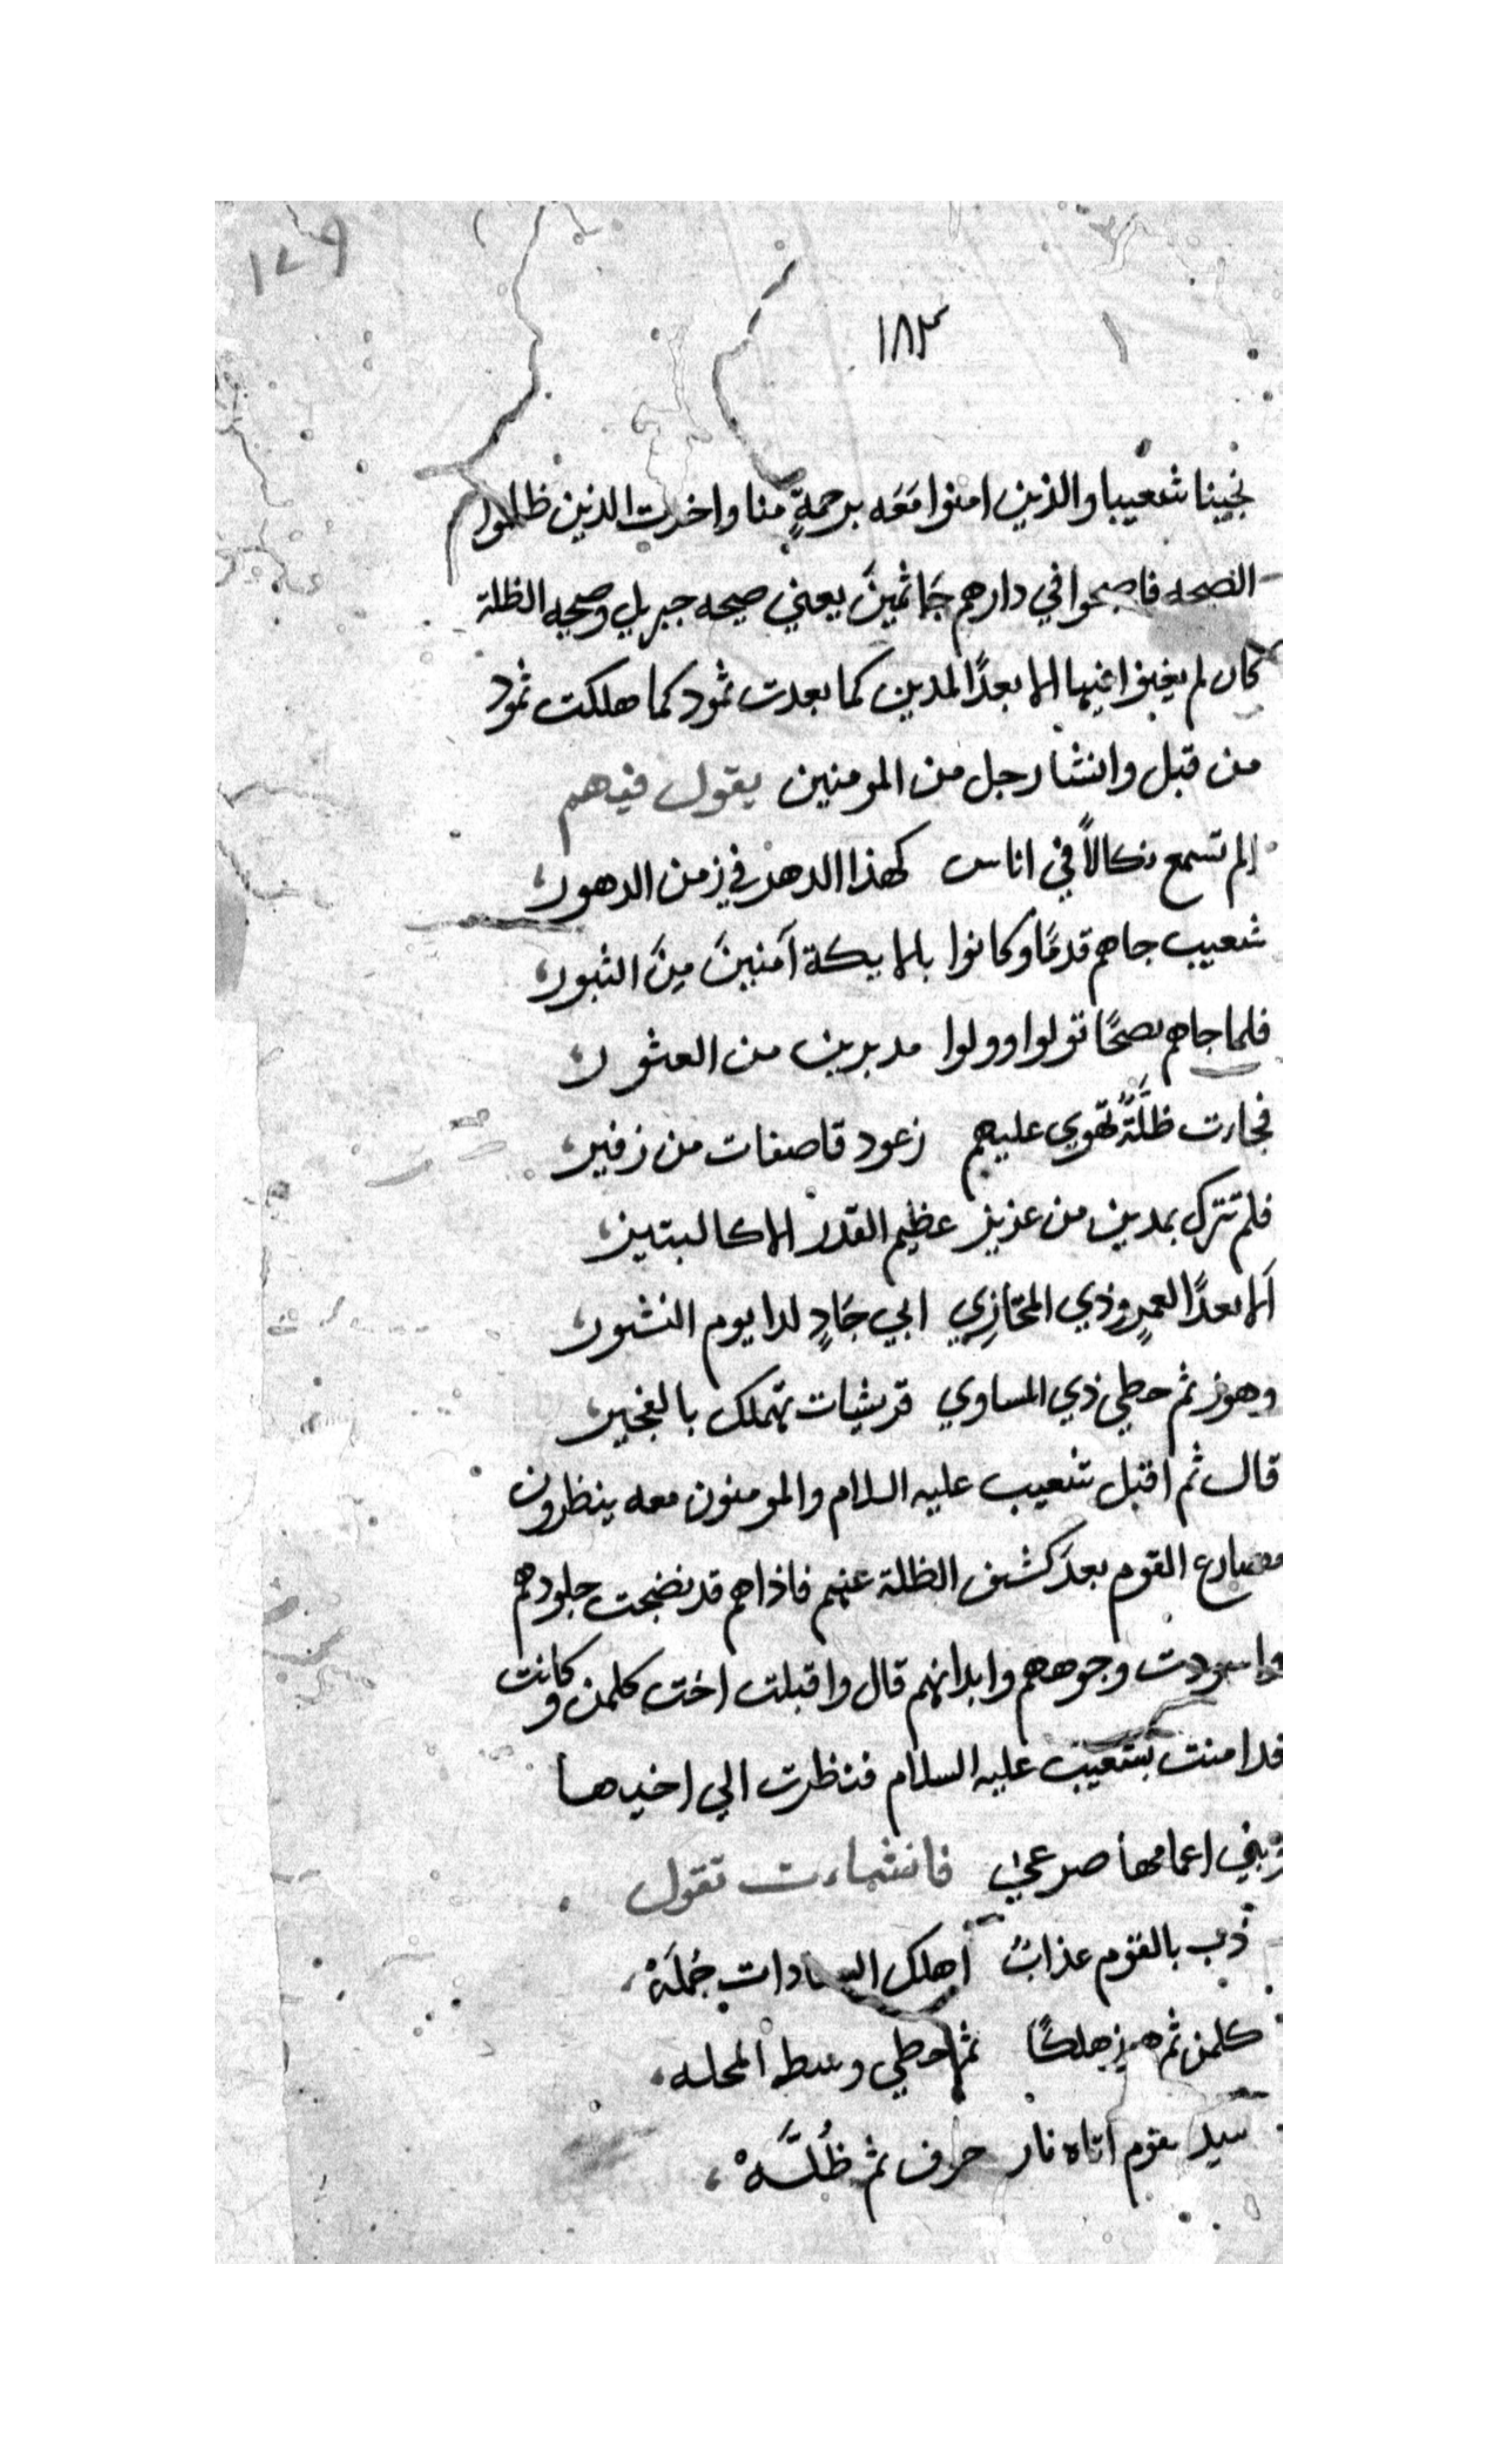 ١٧٩
١٨٣
نجينا شعيبا والذين امنوا مَعَه برحمةٍ منا واخذت الذين ظلموا
الصيحه فاصبحوا في دارهم جَاثمينَ يعني صيحه جبريل وصيحه الظلة
كان لم يغنوا فيها الا بعدًا لمدين كما بعدت ثمود كما هلكت ثمود
من قبل وانشا رجل من المومنين يقول فيهم
الم تسمع نكالاً في اناس كهذا الدهر في زمن الدهور
شعيب جاهم قدمًا وكانوا بالايكة آمنينَ مِنَ الثبور
فلما جاهم نصحًا تولوا وولوا مدبرين من العثور
فجارت ظلَّةً تهوي عليهم زعود قاصفات من زفير
فلم تترك بمدين من عزيز عظيم القدر الا كالبتير
اَلا بعدًا لعمرٍو ذي المخازِي ابي جَادٍ لدا يوم النشور
وهوز ثم حطي ذي المساوي قرشيات تهلك بالفجير
قال ثم اقبل شعيب عليه السلام والمومنون معه ينظرون
مصارع القوم بعدَ كشف الظلة عنهم فاذا هم قد نضجت جلودهم
واسودت وجوههم وابدانهم قال واقبلت اخت كلمن وكانت
قد امنت بشعيب عليه السلام فنظرت الي اخيها
وبني اعمامها صرعي فانشاءت تقول
ذب بالقوم عذابٌ اهلك السادات جُملَهْ
كلمن ثم هوز هلكًا ثم حطي وسط المحله
سيد قوم اتاه نار حرف ثم ظُلَّهْ